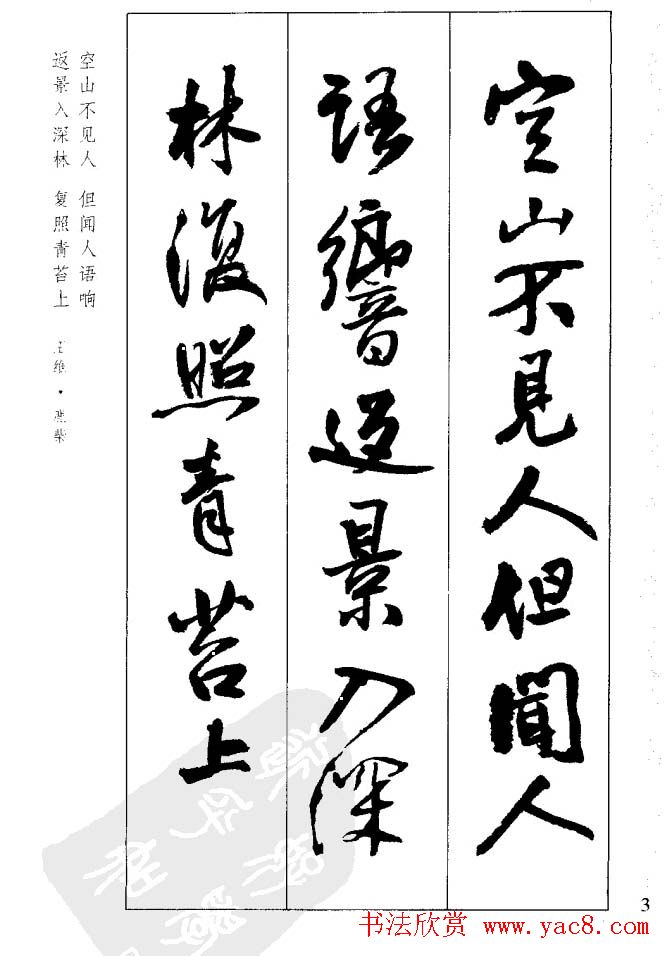 空山不見人但聞人
語響返景入深
林復照青苔上
空山不见人 但闻人语响
返景入深林 复照青苔上
王维·鹿柴
3
书法欣赏 www.yac8.com